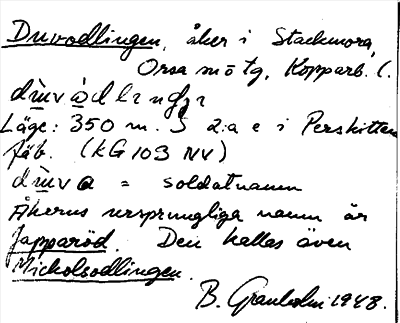 Duvodlingen, åker i Stackmora,
Orsa sn ö tg, Kopparb. l.
Läge: 350 m. S 2:a e i Perskitten
fäb. (KG103 NV)
= soldatnamn
Åkerns ursprungliga namn är
Japparöd. Den kallas även
Mickolsodlingen.
B. Granholm 1948.